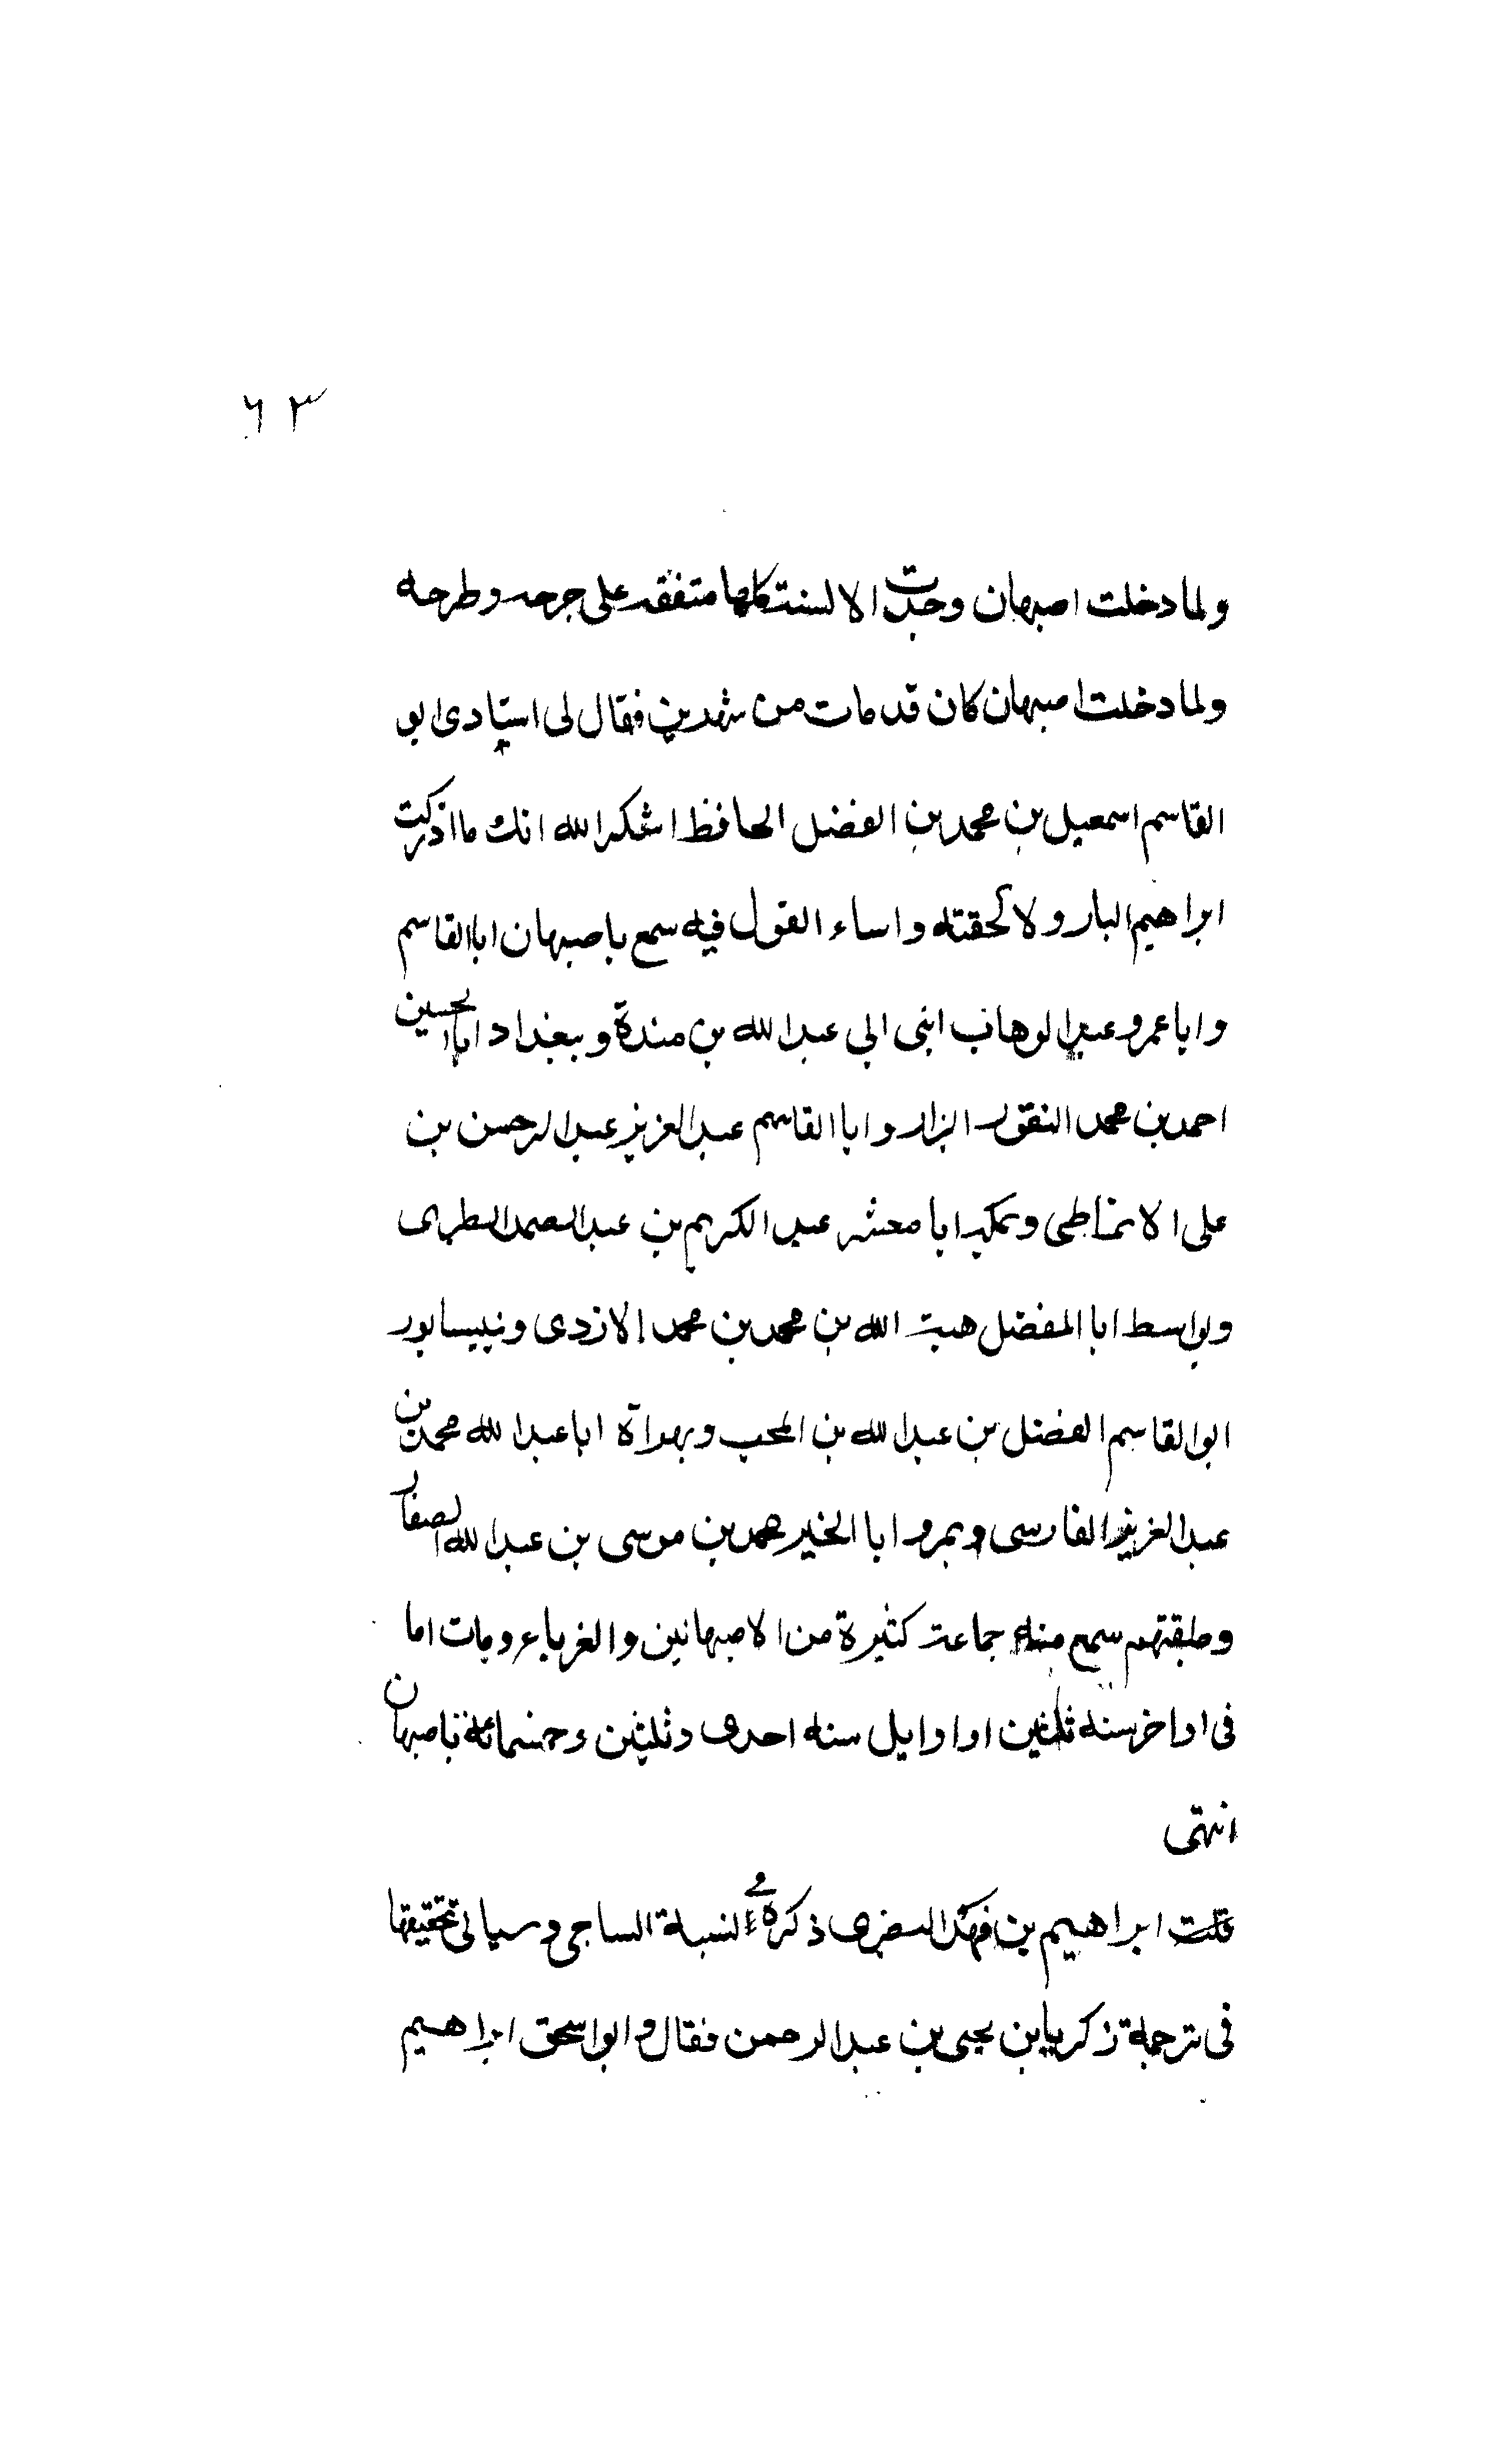 ٦٣
ولما دخلت اصبهان وجدت الالسنة كلها متفقه على جرحه وطرحه
ولما دخلت اصبهان كان قد مات من شهرين فقال لى استادى ابو
القاسم اسمعيل بن محمد بن الفضل الحافظ اشكر الله انك ما ادركت
ابراهيم البار ولا لحقته واساء القول فيه سمع باصبهان ابا القاسم
وابا عمرو عبد الوهاب ابنى ابى عبد الله بن مندة وببغداد ابا الحسين
احمد بن محمد النقور البزار وابا القاسم عبد العزيز عبد الرحمن بن
على الانماطى وبمكة ابا معشر عبد الكريم بن عبد الصمد الطبرى
وبواسط ابا المفضل هبة الله بن محمد بن محمد الازدى ونيسابور
ابو القاسم الفضل بن عبد الله بن المحب وبهراة ابا عبد الله محمد بن
عبد العزيز الفارسى وبمرو ابا الخير محمد بن موسى بن عبد الله الصفار
وطبقتهم سمع منه جماعة كثيرة من الاصبهانين والغرباء ومات اما
فى اواخر سنه ثلثين او اوايل سنه احدى وثلثين وخمسمائة باصبهان
انتهى
قلت ابراهيم بن فهد البصرى ذكره فى النسبة الساجى وسياتى تحقيقها
فى ترجمة زكريا بن يحيى بن عبد الرحمن فقال وابو اسحق ابراهيم